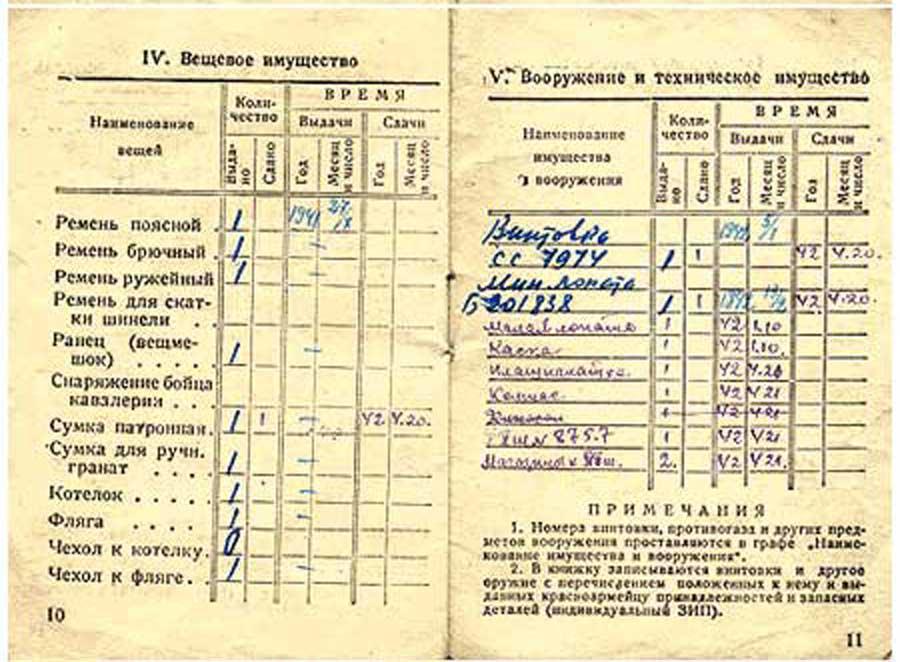 IV. Вещевое имущество
Наименование вещей
Количество
ВРЕМЯ
Выдачи
Сдачи
Выдано
Сдано
Год
Месяц и число
Год
Месяц и число
Ремень поясной . 1 1941
Ремень брючный . 1
Ремень ружейный 1
Ремень для скат-
ки шинели . .
Ранец (вещме-
шок) . . . . 1
Снаряжение бойца
кавалерии . . .
Сумка патронная. 1 1 42 4.20.
Сумка для ручн.
гранат . . . . 1
Котелок . . . . . 1
Фляга . . . . 1
Чехол к котелку. 0
Чехол к фляге. . 1
10
V. Вооружение и техническое имущество
Наименование
имущества
и вооружения
Количество
ВРЕМЯ
Выдачи
Сдачи
Выдано
Сдано
Год
Месяц и число
Год
Месяц и число
Винтовка
СС 7974 1 1 42 4.20.
лопата
201838 1 1 42 4.20.
Малая лопата 1 42 1.10
Каска 1 42 1.10.
1 42 4.20
Компас 1 42 4.21
1 42 4.21
ППШ № 8757 1 42 4.21
Магазинов к ППШ. 2. 42 4.21.
ПРИМЕЧАНИЯ
1. Номера винтовки, противогаза и других пред-
метов вооружения проставляются в графе „Наиме-
нование имущества и вооружения".
2. В книжку записываются винтовки и другое
оружие с перечислением положенных к нему и вы-
данных красноармейцу принадлежностей и запасных
деталей (индивидуальный ЗИП).
11